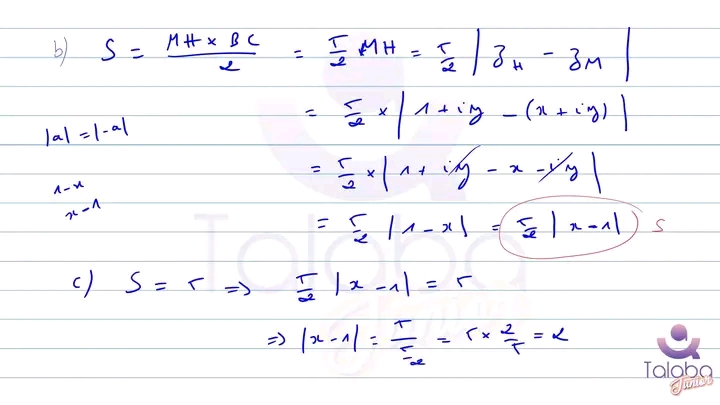 b) S = MH × BC / 2 = 5/2 MH = 5/2 | z_H - z_M |
= 5/2 × | 1 + iy - (x + iy) |
|a| = |-a|
= 5/2 × | 1 + iy - x - iy |
1-x
x-1
= 5/2 | 1 - x | = 5/2 | x - 1 | S
c) S = 5 => 5/2 | x - 1 | = 5
=> | x - 1 | = 5 / 5/2 = 5 × 2/5 = 2
Talaba
Junior
Talaba
Junior